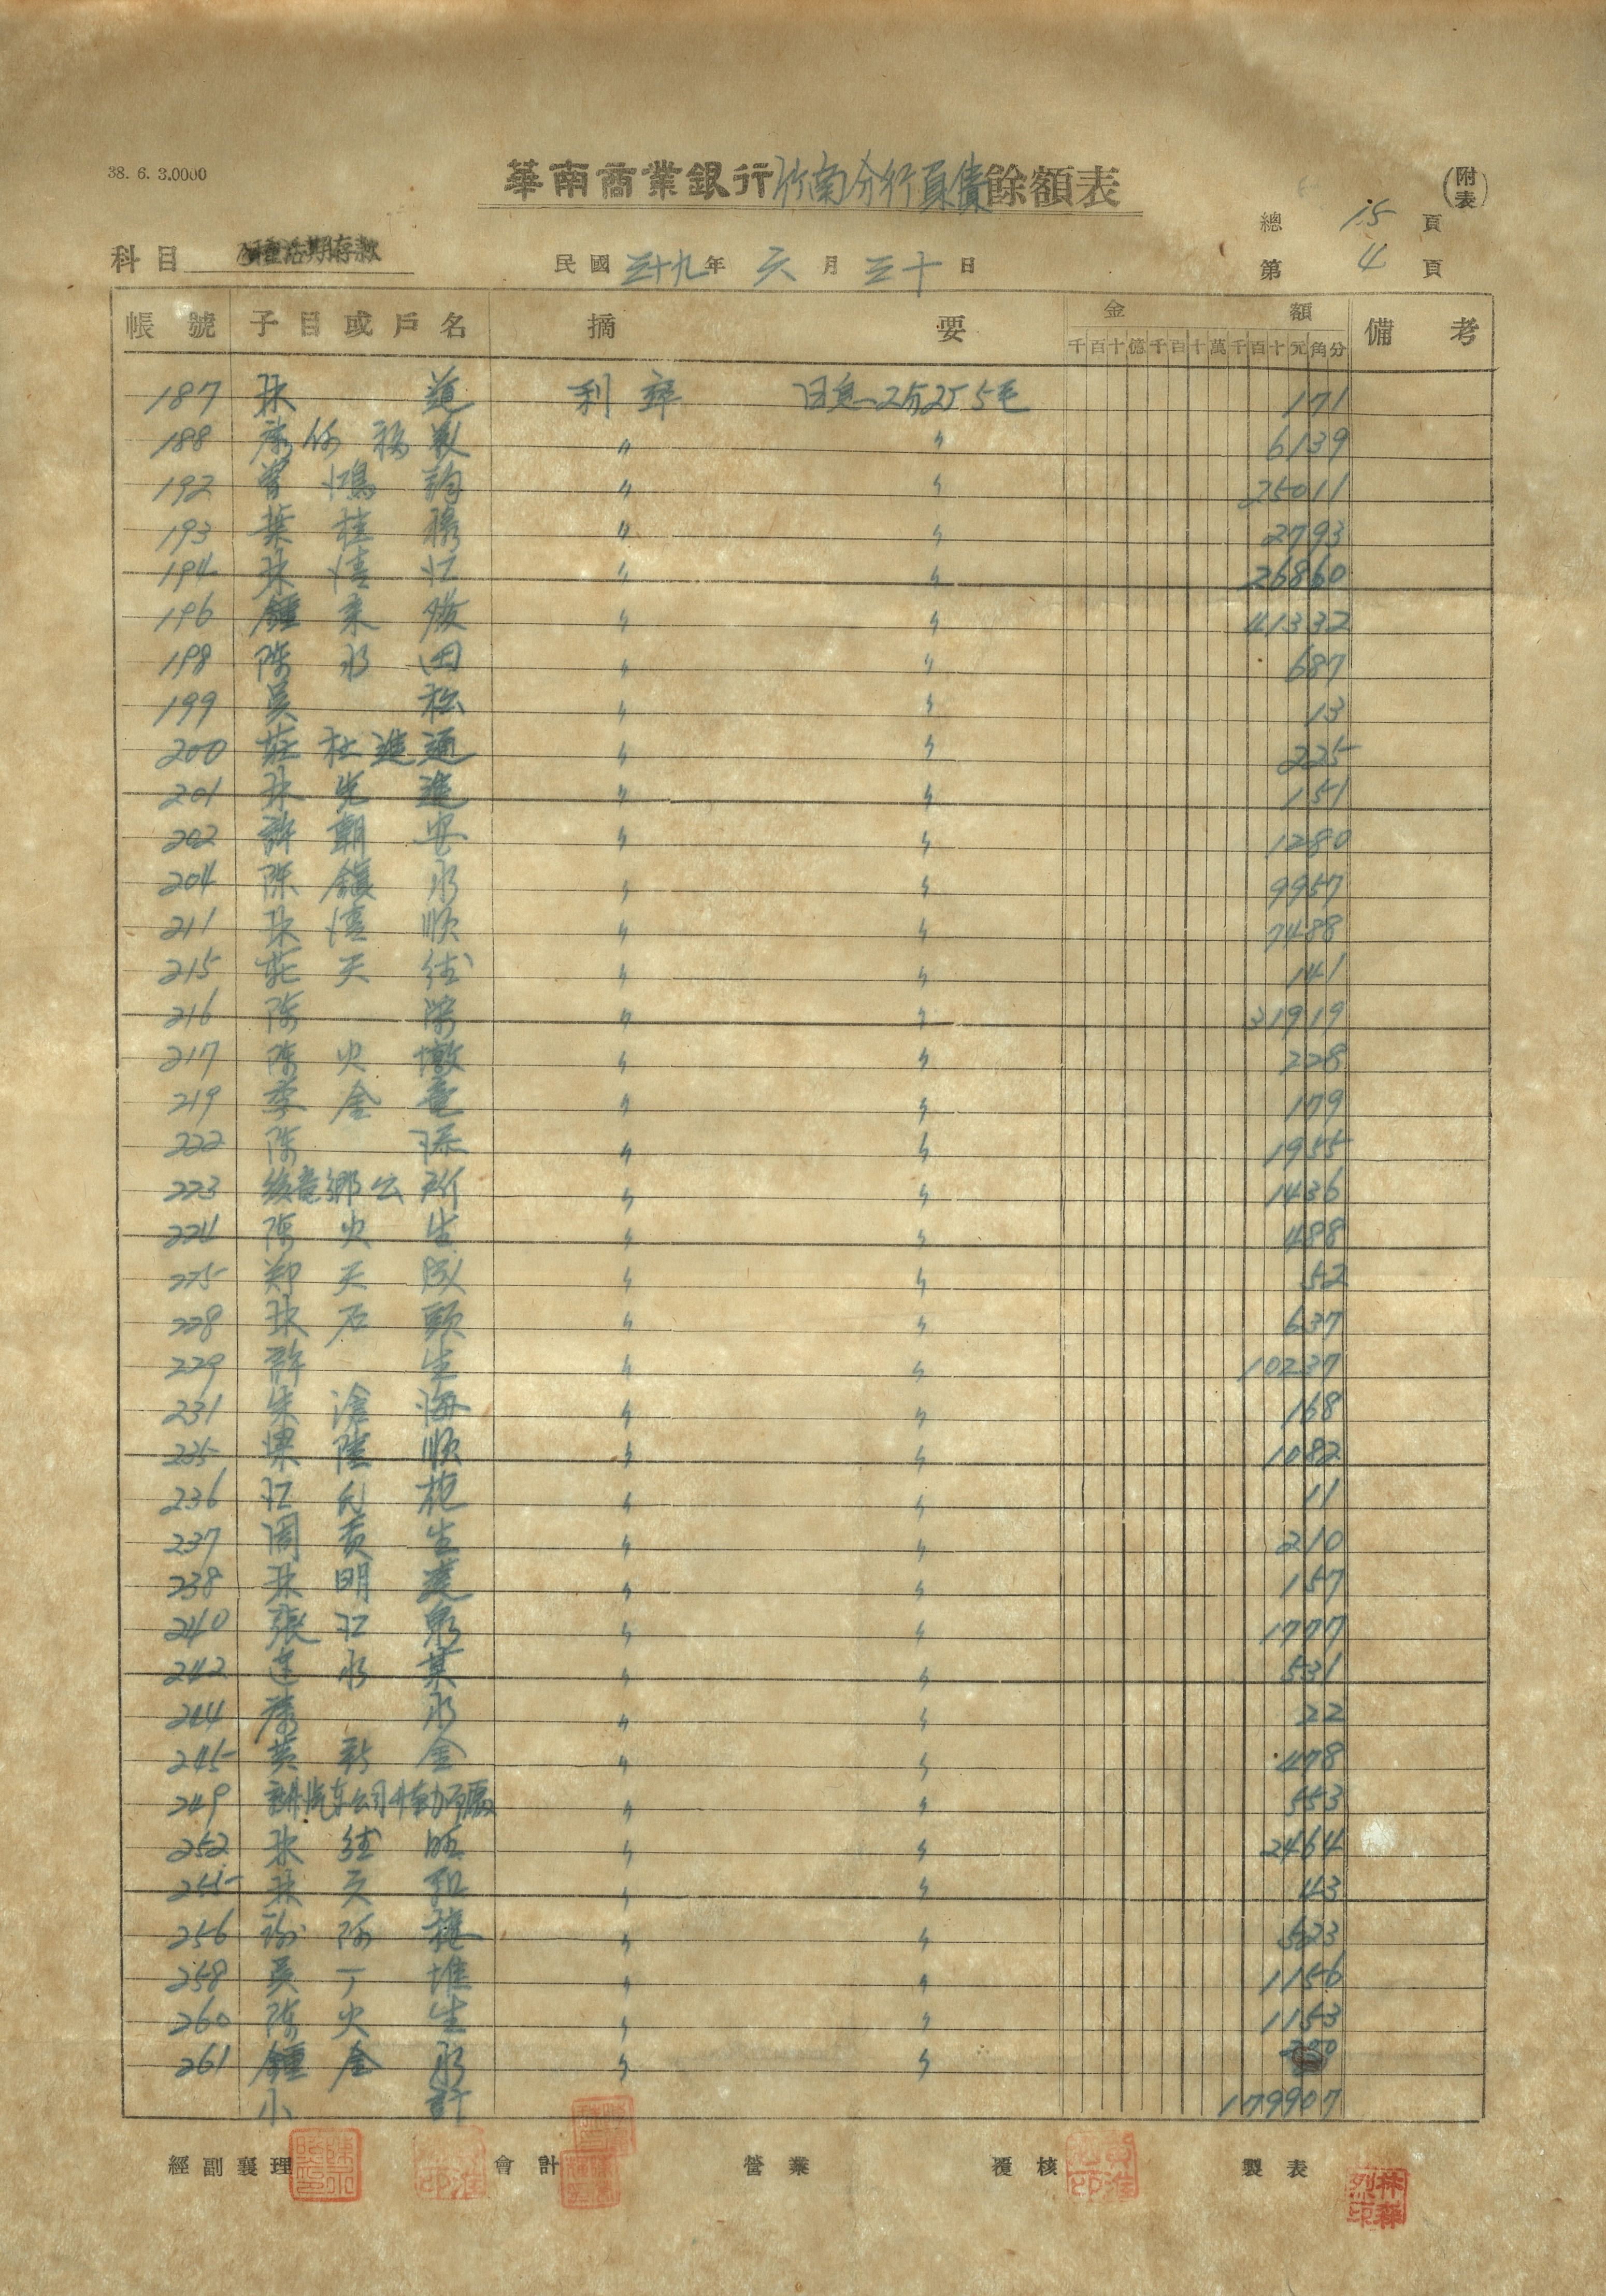 38. 6. 3.0000
華南商業銀行竹南分行負債餘額表
(附表)
總 15 頁
科目 種活期存款 民國 三十九年 六 月 三十 日
第 4 頁
帳號 子目或戶名 摘要 金額 備考
千百十億千百十萬千百十元角分
187 林 道 利率 日息 2分2厘5毛 171
188 〃 〃 6139
192 曾鴻 〃 〃 25011
193 葉桂 〃 〃 2793
194 林清江 〃 〃 26860
196 鍾來發 〃 〃 41332
198 陳水田 〃 〃 687
199 吳 松 〃 〃 13
200 莊杜進通 〃 〃 225
201 林先進 〃 〃 151
202 許朝安 〃 〃 1280
204 陳鎮永 〃 〃 9957
211 林清順 〃 〃 7488
215 莊天德 〃 〃 141
216 陳 榮 〃 〃 31919
217 陳火墩 〃 〃 228
219 李金 〃 〃 179
222 陳 添 〃 〃 1955
223 後龍鄉公所 〃 〃 1436
224 陳火生 〃 〃 488
225 鄭天 〃 〃 52
228 林石頭 〃 〃 637
229 許 生 〃 〃 10237
231 朱滄海 〃 〃 168
235 陸順 〃 〃 1082
236 江 〃 〃 11
237 周貴生 〃 〃 210
238 林明 〃 〃 157
240 張江泉 〃 〃 1777
242 連水其 〃 〃 531
244 康 永 〃 〃 22
245 黃新金 〃 〃 478
249 汽車公司 〃 〃 553
252 林德旺 〃 〃 2464
255 林天和 〃 〃 43
256 謝阿 〃 〃 523
258 吳丁堆 〃 〃 1156
260 陳火生 〃 〃 1153
261 鍾金永 〃 〃
小計 179907
經副襄理 會計 營業 覆核 製表